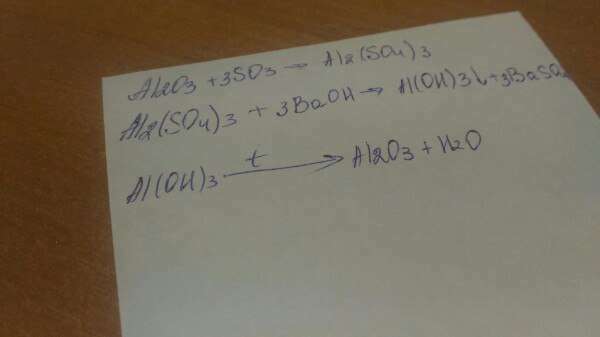 Al2O3 + 3SO3 → Al2(SO4)3
Al2(SO4)3 + 3BaOH → Al(OH)3↓ + 3BaSO4
Al(OH)3 t→ Al2O3 + H2O